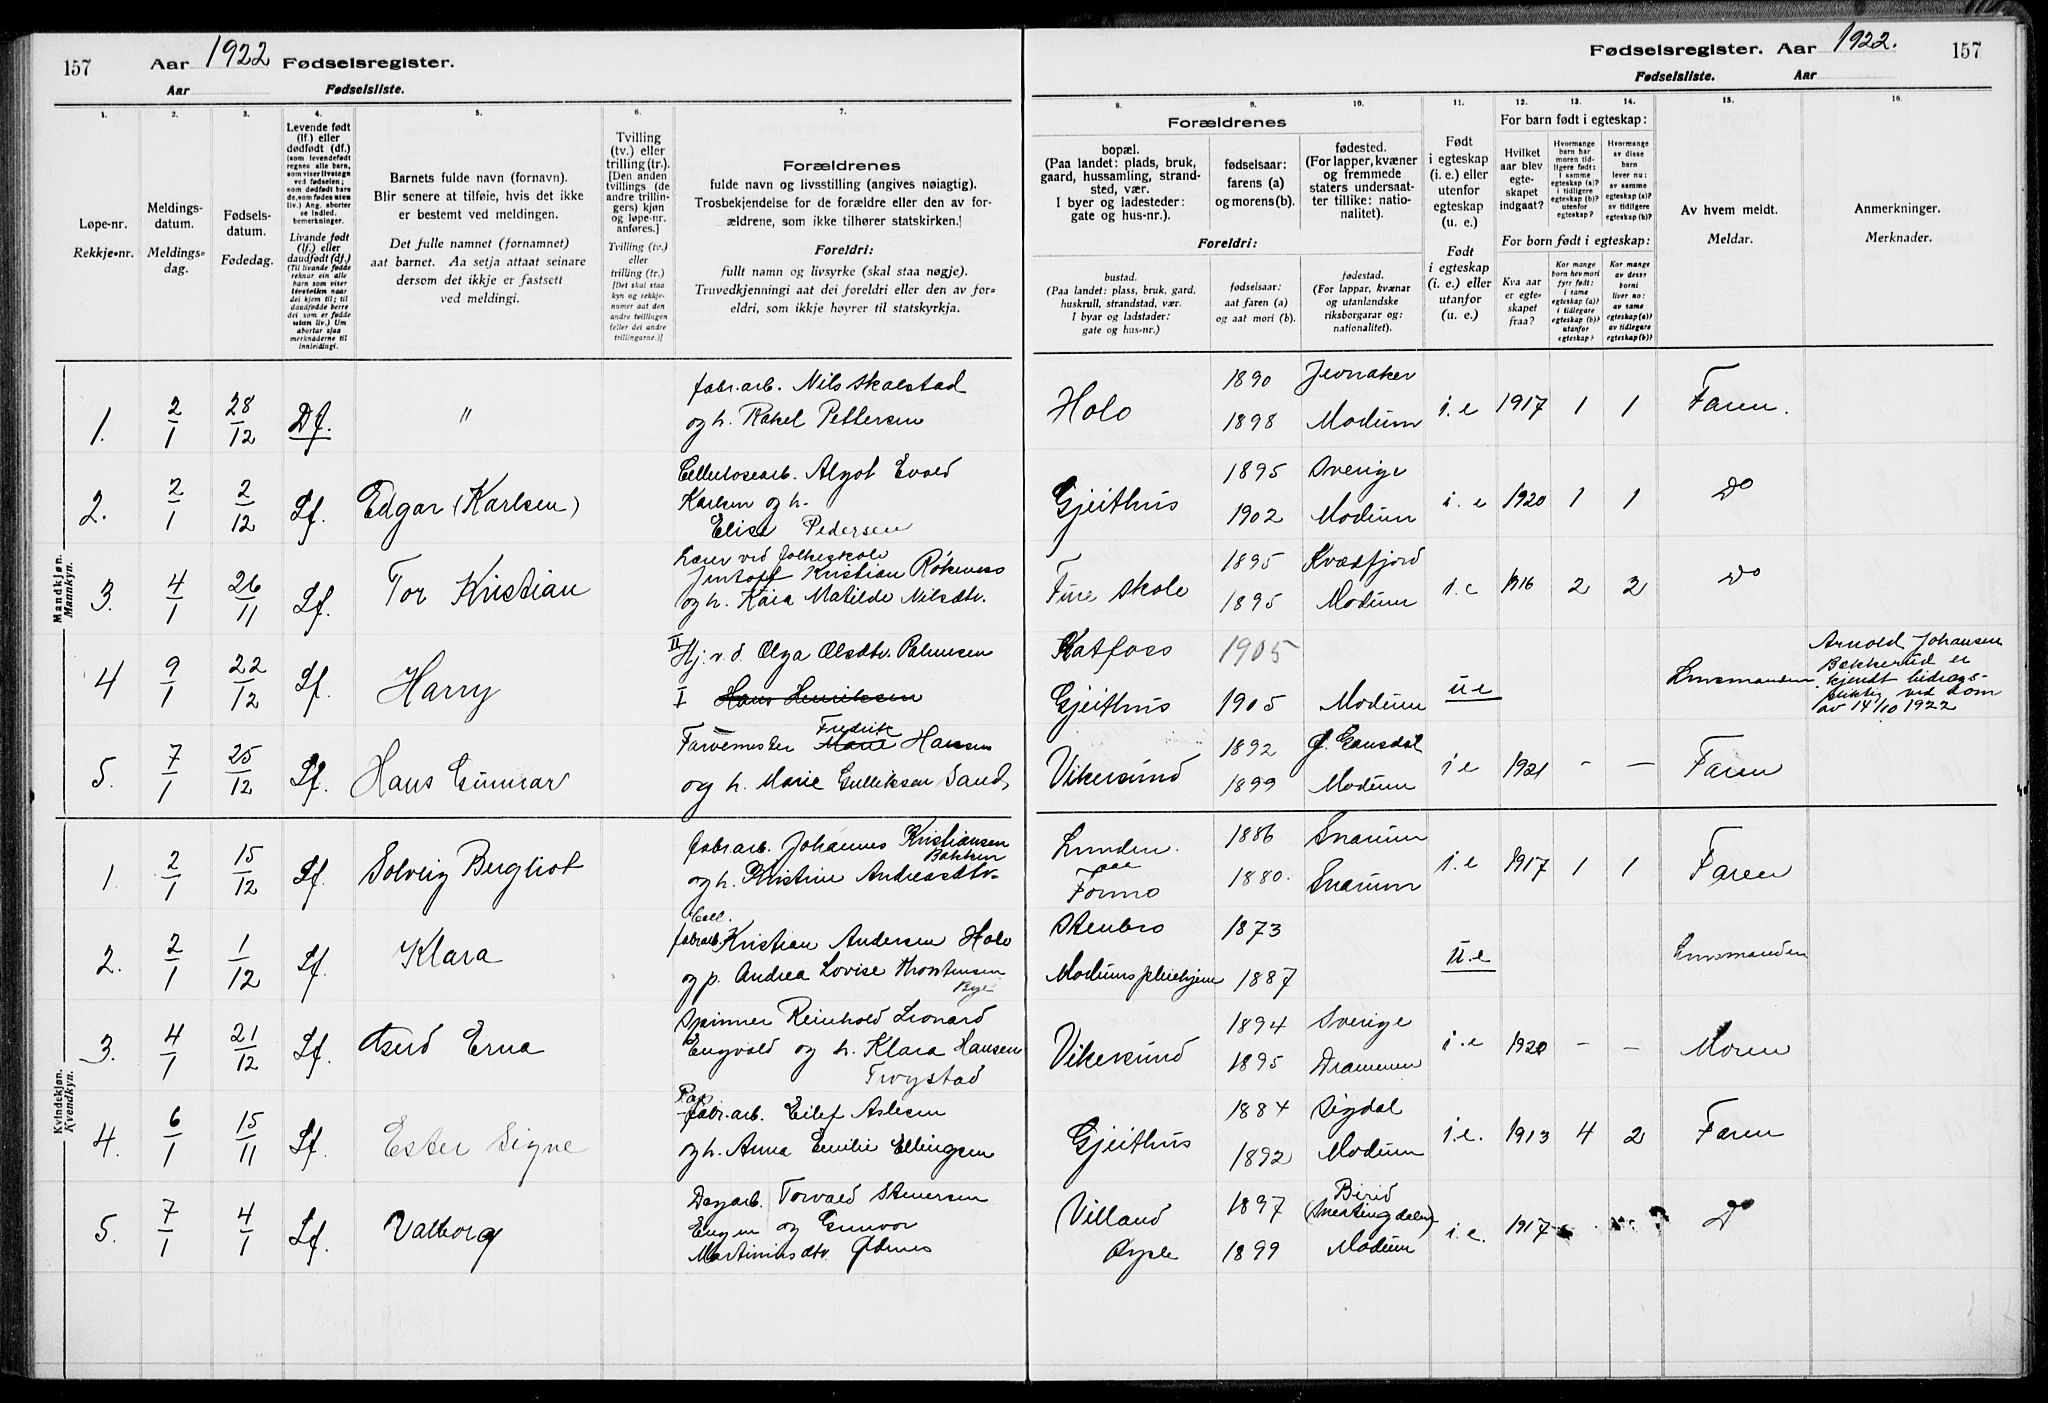 157 Aar 1922 Fødselsregister.
Aar Fødselsliste.
1. 2. 3. 4. 5. 6. 7.
Løpe-nr.
Rekkje-nr.
Meldings-
datum.
Meldings-
dag.
Fødsels-
datum.
Fødedag.
Levende født
(lf.) eller
dødfødt (df.)
(som levendefødt
regnes alle barn,
som viser livstegn
ved fødselen;
som dødfødt bare
de, som fødes uten
liv.) Ang. aborter
se indled.
bemerkninger.
Livande født
(lf.) eller
daudfødt (df.)
(Til livande fødde
reknar ein alle
barn som viser
livsteikn naar
dei kjem til; til
daudfødde berre
dei som er fødde
utan liv.) Um
abortar sjaa
merknaderne til
innleidingi.
Barnets fulde navn (fornavn).
Blir senere at tilføie, hvis det ikke
er bestemt ved meldingen.
Det fulle namnet (fornamnet)
aat barnet. Aa setja attaat seinare
dersom det ikkje er fastsett
ved meldingi.
Tvilling
(tv.) eller
trilling (tr.).
[Den anden
tvillings (de
andre trillin-
gers) kjøn
og løpe-nr.
anføres.]
Tvilling (tv.)
eller
trilling (tr.)
[Det skal staa
kyn og rekkje-
numer aat den
andre tvillingen
(eller dei andre
trillingarne.)]
Forældrenes
fulde navn og livsstilling (angives nøiagtig).
Trosbekjendelse for de forældre eller den av for-
ældrene, som ikke tilhører statskirken.
Foreldri:
fullt namn og livsyrke (skal staa nøgje).
Truvedkjenningi aat dei foreldri eller den av for-
eldri, som ikkje høyrer til statskyrkja.
Mandkjøn.
Mannkyn.
1. 2/1 28/12 Df. "
fabr.arb. Nils Skalstad
og h. Rakel Pettersen
2. 2/1 2/12 Lf. Edgar (Karlsen)
Cellulosearb. Algot Evald
Karlsen og h.
Elise Pedersen
3. 4/1 26/11 Lf. Tor Kristian
Lærer ved folkeskole
Kristian
og h. Kaia Matilde Nilsdtr.
4 9/1 22/12 Lf. Harry
II Hj. v. d. Olga Olsdtr. Palmesen
I Hans Henriksen
5. 7/1 25/12 Lf. Hans Gunnar
Fredrik
Farvemester Marie Hansen
og h. Marie Gulliksen Sand,
Kvindekjøn.
Kvendkyn.
1. 2/1 15/12 Lf. Solveig Bergliot
fabr.arb. Johannes Kristiansen
Bakken
og h. Kristine Andreasdtr.
2. 2/1 1/12 Lf. Klara
Cell.
fabrarb. Kristian Andersen Holo
og p. Andrea Lovise Thorstensen
Bye
3. 4/1 21/12 Lf. Astrid Erna
Spinner Reinhold Leonard
Engvold og h. Klara Hansen
4. 6/1 15/11 Lf. Ester Signe
Pap.
fabr.arb. Eilef Aslesen
og h. Anna Emilie Ellingsen
5. 7/1 4/1 Lf. Valborg
Dagarb. Torvald Stenersen
Engen og Gunvor
Martinusdtr. Ødenes
Fødselsregister. Aar 1922. 157
Fødselsliste. Aar
8. 9. 10. 11. 12. 13. 14. 15. 16.
Forældrenes
bopæl.
(Paa landet: plads, bruk,
gaard, hussamling, strand-
sted, vær.
I byer og ladesteder:
gate og hus-nr.).
fødselsaar:
farens (a)
og morens (b).
fødested.
(For lapper, kvæner
og fremmede
staters undersaat-
ter tillike: natio-
nalitet).
Foreldri:
bustad.
(Paa landet: plass, bruk, gard,
huskrull, strandstad, vær.
I byar og ladstader:
gate og hus-nr.)
fødselsaar:
aat faren (a)
og aat mori (b).
fødestad.
(For lappar, kvænar
og utanlandske
riksborgarar og:
nationalitet).
Født
i egteskap
(i. e.) eller
utenfor
egteskap
(u. e.)
Født
i egteskap
(i. e.) eller
utanfor
(u. e.)
For barn født i egteskap:
Hvilket
aar blev
egte-
skapet
indgaat?
Hvormange
barn har
moren tid-
ligere født:
i samme
egteskap (a)?
i tidligere
egteskap (b)?
utenfor
egteskap?
Hvormange
av disse
barn
lever nu:
av samme
egteskap (a)?
av tidligere
egteskap (b)?
For born født i egteskap:
Kva aar
er egte-
skapet
fraa?
Kor mange
born hev mori
fyrr født:
i same
egteskap (a)?
i tidlegare
egteskap (b)?
utanfor
egteskap?
Kor mange
av desse
borni
liver no:
av same
egteskap (a)?
av tidlegare
egteskap (b)?
Av hvem meldt.
Meldar.
Anmerkninger.
Merknader.
Holo 1890 Jevnaker i. e 1917 1 1 Faren.
1898 Modum
Gjeithus 1895 Sverige i. e 1920 1 1 Do
1902 Modum
Fure skole 1895 Kvæfjord i. e 1916 2 2 Do
1895 Modum
Katfoss 1905
Gjeithus 1905 Modum u e Lensmanden
Arnold Johansen
Bakkerud er
kjendt bidrags-
pliktig ved dom
av 14/10 1922
Vikersund 1892 i e 1921 - - Faren
1899 Modum
Lunden 1886 Snarum i. e 1917 1 1 Faren
paa
Formo 1880. Snarum
Stenbro 1873 u. e Lensmanden
Modums pleiehjem 1887
Vikersund 1894 Sverige i. e 1920 - - Moren
1895 Drammen
Gjeithus 1884 Sigdal i. e. 1913 4 2 Faren
1892 Modum
Villand 1897 Birid
(Snertingdalen) i. e. 1917 Do
1899 Modum